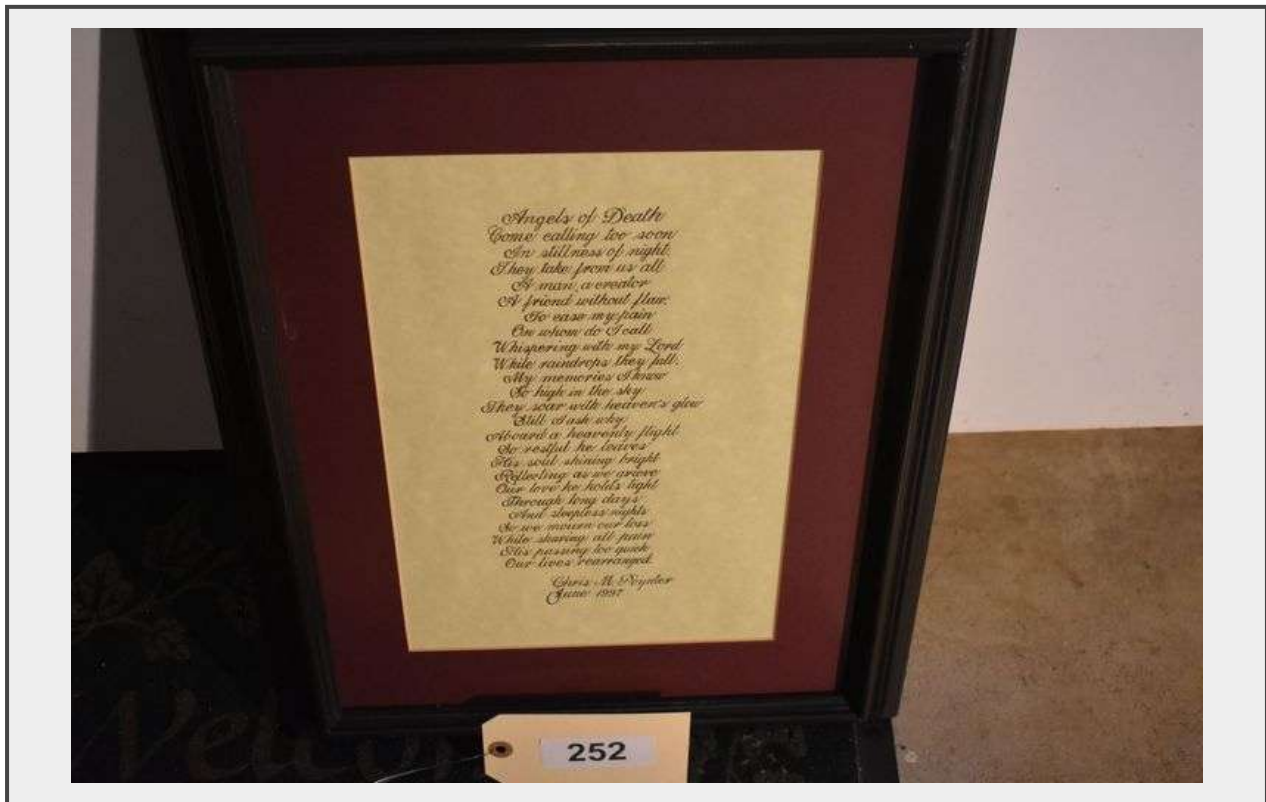 Angels of Death
Come calling too soon
In stillness of night.
They take from us all
A man, a creator
A friend without flaw.
To ease my pain
On whom do I call
Whispering with my Lord
While raindrops they fall.
My memories I know
So high in the sky
They soar with heaven's glow
Still I ask why
Aboard a heavenly flight
So restful he leaves
His soul shining bright
Reflecting as we grieve
Our love he holds tight
Through long days
And sleepless nights
So we mourn our loss
While sharing all pain
His passing too quick
Our lives rearranged.
Chris M. Poynter
June 1997
252